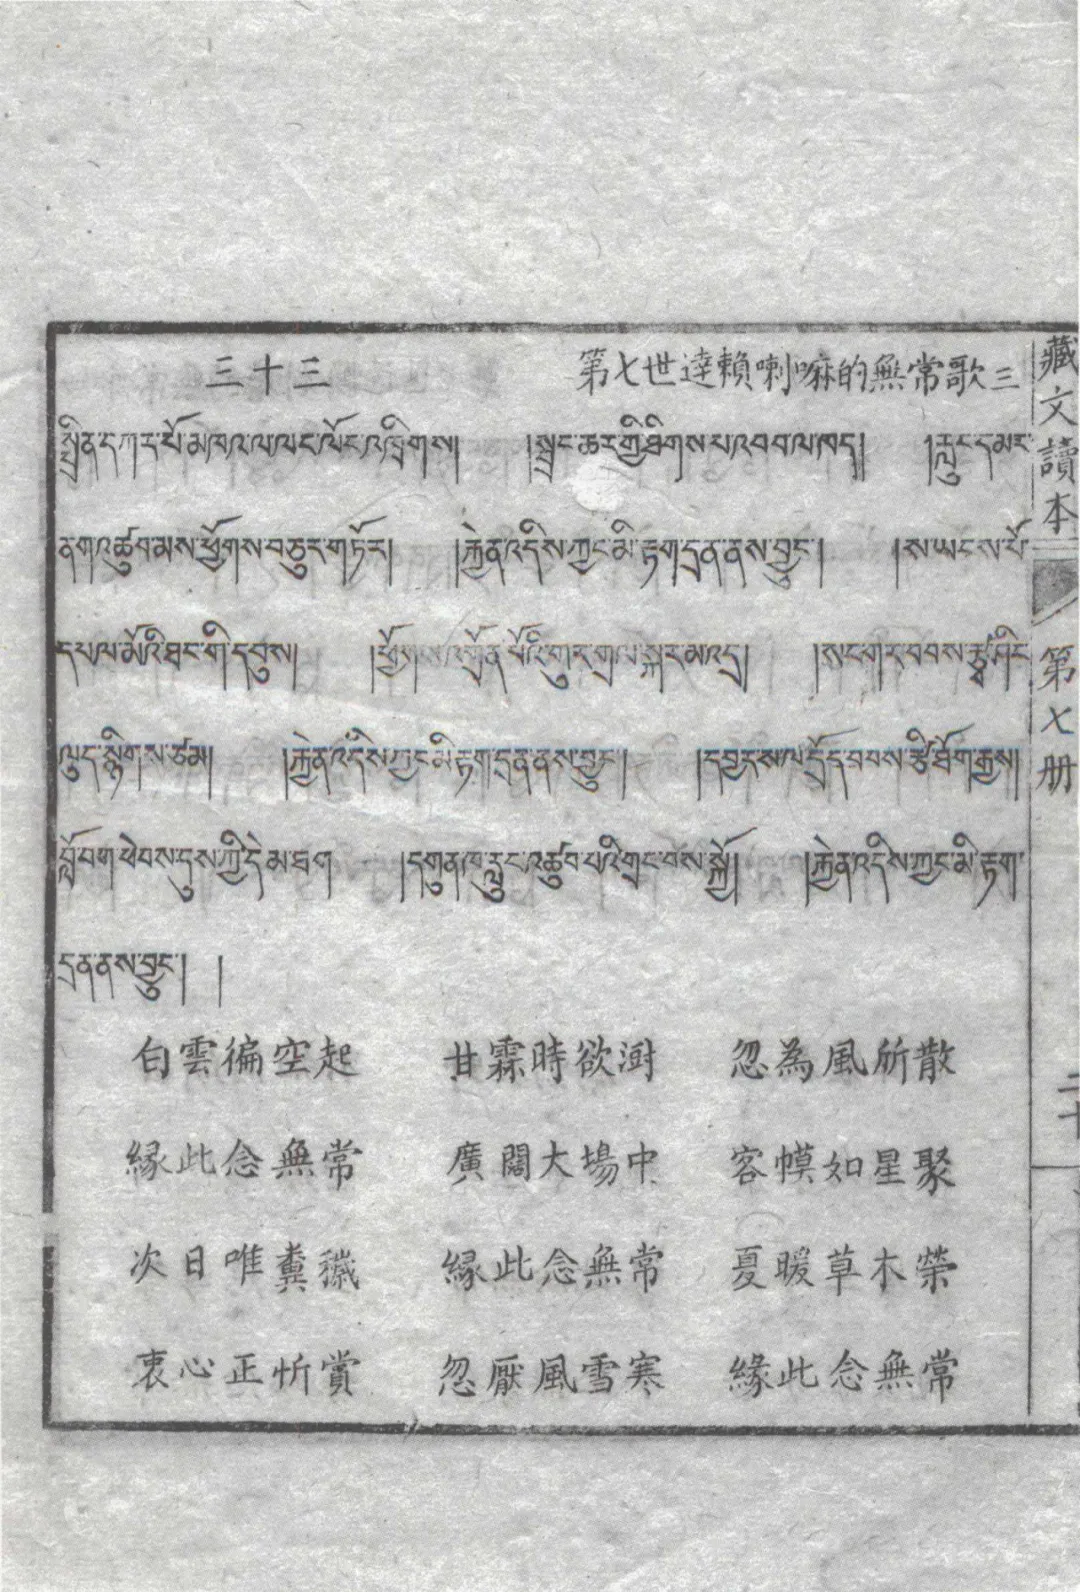 三十三 第七世達賴喇嘛的無常歌三
སྤྲིན་དཀར་པོ་མཁའ་ལ་ལང་ལོང་འཁྲིགས། །སྦྲང་ཆར་གྱི་ཐིགས་པ་འབབ་ལ་ཁད། །རླུང་དམར་
ནག་འཚུབ་མས་ཕྱོགས་བཅུར་གཏོར། །རྐྱེན་འདིས་ཀྱང་མི་རྟག་དྲན་ནས་བྱུང་། །ས་ཡངས་པོ་
དཔལ་མོའི་ཐང་གི་དབུས། །འགྲོན་པོའི་གུར་གྲལ་སྐར་མ་འདྲ། །སང་གར་བབས་རྩྭ་ཤིང་
ལུད་སྙིགས་ཙམ། །རྐྱེན་འདིས་ཀྱང་མི་རྟག་དྲན་ནས་བྱུང་། །དབྱར་ས་ལ་དྲོད་བབས་རྩི་ཐོག་རྒྱས།
བློ་བག་ཕེབས་དུས་ཀྱི་དེ་མ་ཐག །དགུན་ཁ་རླུང་འཚུབ་པའི་གྲང་བས་སྐྱོ། །རྐྱེན་འདིས་ཀྱང་མི་རྟག་
དྲན་ནས་བྱུང་། །
白雲徧空起 甘霖時欲澍 忽為風所散
緣此念無常 廣闊大場中 客幙如星聚
次日唯糞穢 緣此念無常 夏暖草木榮
衷心正忻賞 忽厭風雪寒 緣此念無常
藏文讀本 第七册 二十